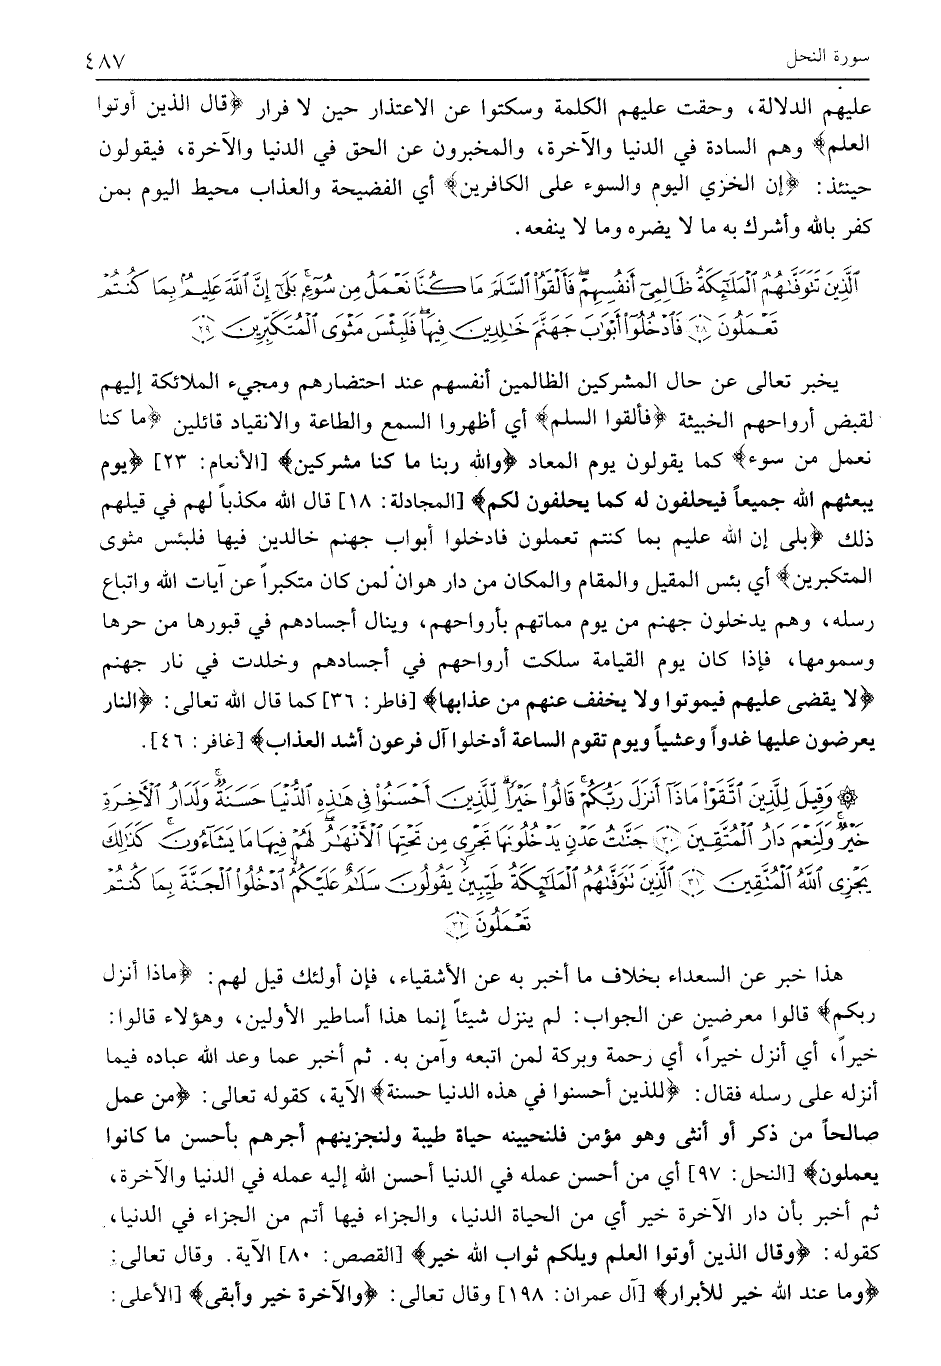 سورة النحل ٤٨٧
عليهم الدلالة، وحقت عليهم الكلمة وسكتوا عن الاعتذار حين لا فرار ﴿قال الذين أوتوا
العلم﴾ وهم السادة في الدنيا والآخرة، والمخبرون عن الحق في الدنيا والآخرة، فيقولون
حينئذ: ﴿إن الخزي اليوم والسوء على الكافرين﴾ أي الفضيحة والعذاب محيط اليوم بمن
كفر بالله وأشرك به ما لا يضره وما لا ينفعه.
ٱلَّذِينَ تَتَوَفَّىٰهُمُ ٱلْمَلَٰٓئِكَةُ ظَالِمِىٓ أَنفُسِهِمْ ۖ فَأَلْقَوُا۟ ٱلسَّلَمَ مَا كُنَّا نَعْمَلُ مِن سُوٓءٍۭ ۚ بَلَىٰٓ إِنَّ ٱللَّهَ عَلِيمٌۢ بِمَا كُنتُمْ
تَعْمَلُونَ ﴿٢٨﴾ فَٱدْخُلُوٓا۟ أَبْوَٰبَ جَهَنَّمَ خَٰلِدِينَ فِيهَا ۖ فَلَبِئْسَ مَثْوَى ٱلْمُتَكَبِّرِينَ ﴿٢٩﴾
يخبر تعالى عن حال المشركين الظالمين أنفسهم عند احتضارهم ومجيء الملائكة إليهم
لقبض أرواحهم الخبيثة ﴿فألقوا السلم﴾ أي أظهروا السمع والطاعة والانقياد قائلين ﴿ما كنا
نعمل من سوء﴾ كما يقولون يوم المعاد ﴿والله ربنا ما كنا مشركين﴾ [الأنعام: ٢٣] ﴿يوم
يبعثهم الله جميعاً فيحلفون له كما يحلفون لكم﴾ [المجادلة: ١٨] قال الله مكذباً لهم في قيلهم
ذلك ﴿بلى إن الله عليم بما كنتم تعملون فادخلوا أبواب جهنم خالدين فيها فلبئس مثوى
المتكبرين﴾ أي بئس المقيل والمقام والمكان من دار هوان لمن كان متكبراً عن آيات الله واتباع
رسله، وهم يدخلون جهنم من يوم مماتهم بأرواحهم، وينال أجسادهم في قبورها من حرها
وسمومها، فإذا كان يوم القيامة سلكت أرواحهم في أجسادهم وخلدت في نار جهنم
﴿لا يقضى عليهم فيموتوا ولا يخفف عنهم من عذابها﴾ [فاطر: ٣٦] كما قال الله تعالى: ﴿النار
يعرضون عليها غدواً وعشياً ويوم تقوم الساعة أدخلوا آل فرعون أشد العذاب﴾ [غافر: ٤٦].
۞ وَقِيلَ لِلَّذِينَ ٱتَّقَوْا۟ مَاذَآ أَنزَلَ رَبُّكُمْ ۚ قَالُوا۟ خَيْرًا ۗ لِّلَّذِينَ أَحْسَنُوا۟ فِى هَٰذِهِ ٱلدُّنْيَا حَسَنَةٌ ۚ وَلَدَارُ ٱلْءَاخِرَةِ
خَيْرٌ ۚ وَلَنِعْمَ دَارُ ٱلْمُتَّقِينَ ﴿٣٠﴾ جَنَّٰتُ عَدْنٍ يَدْخُلُونَهَا تَجْرِى مِن تَحْتِهَا ٱلْأَنْهَٰرُ ۖ لَهُمْ فِيهَا مَا يَشَآءُونَ ۚ كَذَٰلِكَ
يَجْزِى ٱللَّهُ ٱلْمُتَّقِينَ ﴿٣١﴾ ٱلَّذِينَ تَتَوَفَّىٰهُمُ ٱلْمَلَٰٓئِكَةُ طَيِّبِينَ ۙ يَقُولُونَ سَلَٰمٌ عَلَيْكُمُ ٱدْخُلُوا۟ ٱلْجَنَّةَ بِمَا كُنتُمْ
تَعْمَلُونَ ﴿٣٢﴾
هذا خبر عن السعداء بخلاف ما أخبر به عن الأشقياء، فإن أولئك قيل لهم: ﴿ماذا أنزل
ربكم﴾ قالوا معرضين عن الجواب: لم ينزل شيئاً إنما هذا أساطير الأولين، وهؤلاء قالوا:
خيراً، أي أنزل خيراً، أي رحمة وبركة لمن اتبعه وآمن به. ثم أخبر عما وعد الله عباده فيما
أنزله على رسله فقال: ﴿للذين أحسنوا في هذه الدنيا حسنة﴾ الآية، كقوله تعالى: ﴿من عمل
صالحاً من ذكر أو أنثى وهو مؤمن فلنحيينه حياة طيبة ولنجزينهم أجرهم بأحسن ما كانوا
يعملون﴾ [النحل: ٩٧] أي من أحسن عمله في الدنيا أحسن الله إليه عمله في الدنيا والآخرة،
ثم أخبر بأن دار الآخرة خير أي من الحياة الدنيا، والجزاء فيها أتم من الجزاء في الدنيا،
كقوله: ﴿وقال الذين أوتوا العلم ويلكم ثواب الله خير﴾ [القصص: ٨٠] الآية. وقال تعالى:
﴿وما عند الله خير للأبرار﴾ [آل عمران: ١٩٨] وقال تعالى: ﴿والآخرة خير وأبقى﴾ [الأعلى: